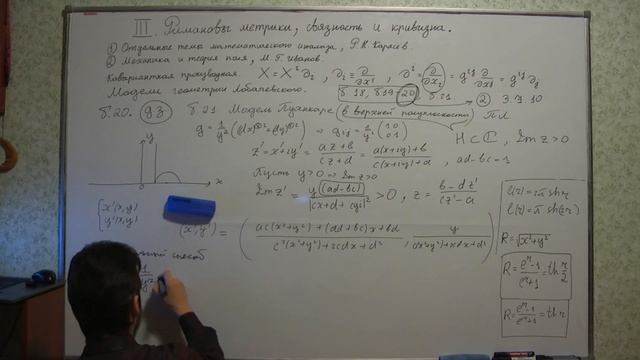 III. Римановы метрики, связность и кривизна.
① Отдельные темы математического анализа, Р.Н. Карасёв
② Механика и теория поля, М.Г. Иванов.
Ковариантная производная. X = X^i ∂_i, ∂_i = ∂/∂x_i, ∂^i = ∂/∂x_i = g^{ij} ∂/∂x_j = g^{ij} ∂_j
Модели геометрии Лобачевского. 8.18, 8.19, 8.20, 8.21 ② 3.7.10
8.20. дз 8.21 Модель Пуанкаре (в верхней полуплоскости) ПЛ
g = 1/y² (dx^{⊗2} + dy^{⊗2}) ⇒ g_{ij} = 1/y² (1 0 0 1) H ⊂ ℂ, Im z > 0
z' = x' + iy' = (az + b)/(cz + d) = (a(x+iy)+b)/(c(x+iy)+d), ad-bc=1
Пусть y > 0 ⇒ Im z > 0
Im z' = y(ad-bc)/|cx+d+cyi|² > 0, z = (b-dz')/(cz'-a)
y
x
x'(x,y)
y'(x,y)
(x', y') = ( (ac(x²+y²) + (ad+bc)x + bd)/(c²(x²+y²)+2cdx+d²), y/(c²(x²+y²)+2cdx+d²) )
способ
1/y²
l(r) = 2π sh r
R = √(x²+y²)
R = (e^r - 1)/(e^r + 1) = th r/2